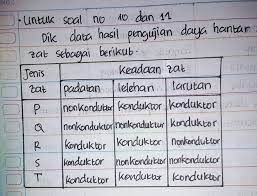 - Untuk soal no 10 dan 11
Dik data hasil pengujian daya hantar
zat sebagai berikut.
Jenis zat | Keadaan zat
padatan | lelehan | larutan
P | nonkonduktor | konduktor | konduktor
Q | nonkonduktor | nonkonduktor | konduktor
R | konduktor | konduktor | nonkonduktor
S | konduktor | nonkonduktor | nonkonduktor
T | konduktor | konduktor | konduktor